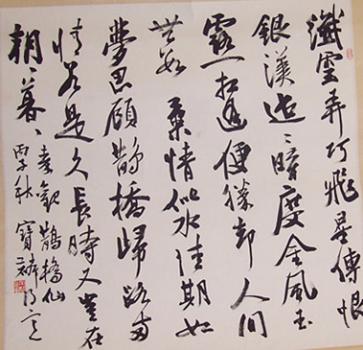 纖雲弄巧飛星傳恨
銀漢迢〻暗度金風玉
露一相逢便勝却人間
無數 柔情似水佳期如
夢忍顧鵲橋歸路兩
情若是久長時又豈在
朝〻暮〻 秦觀鵲橋仙
丙子秋 寶麟